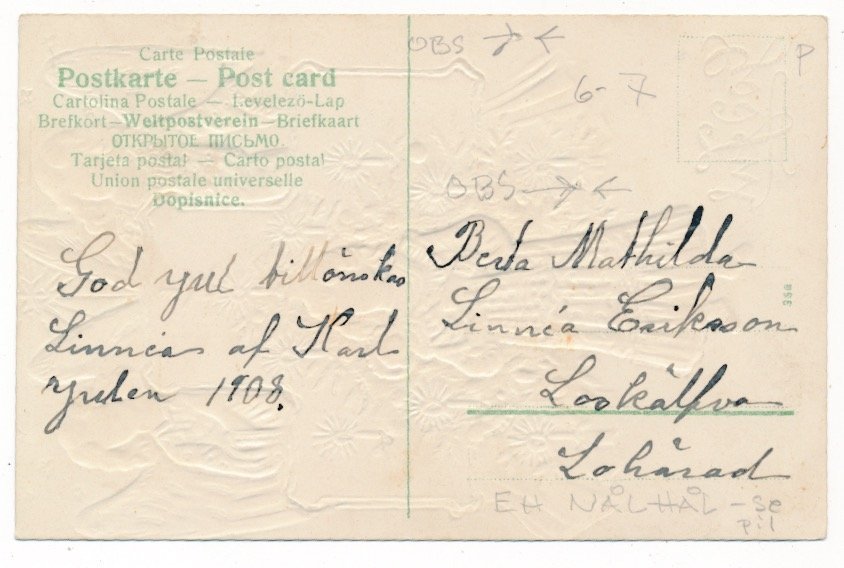 Carte Postale
Postkarte — Post card
Cartolina Postale — Levelező-Lap
Brefkort—Weltpostverein—Briefkaart
ОТКРЫТОЕ ПИСЬМО
Tarjeta postal — Carto postal
Union postale universelle
Dopisnice.
God yul tillönskas
Linnéa af Karl
Yulen 1908.
OBS → ←
6-7
P
OBS → ←
Berta Mathilda
Linnéa Eriksson
Lohärad
EH NÅLHÅL - se
pil